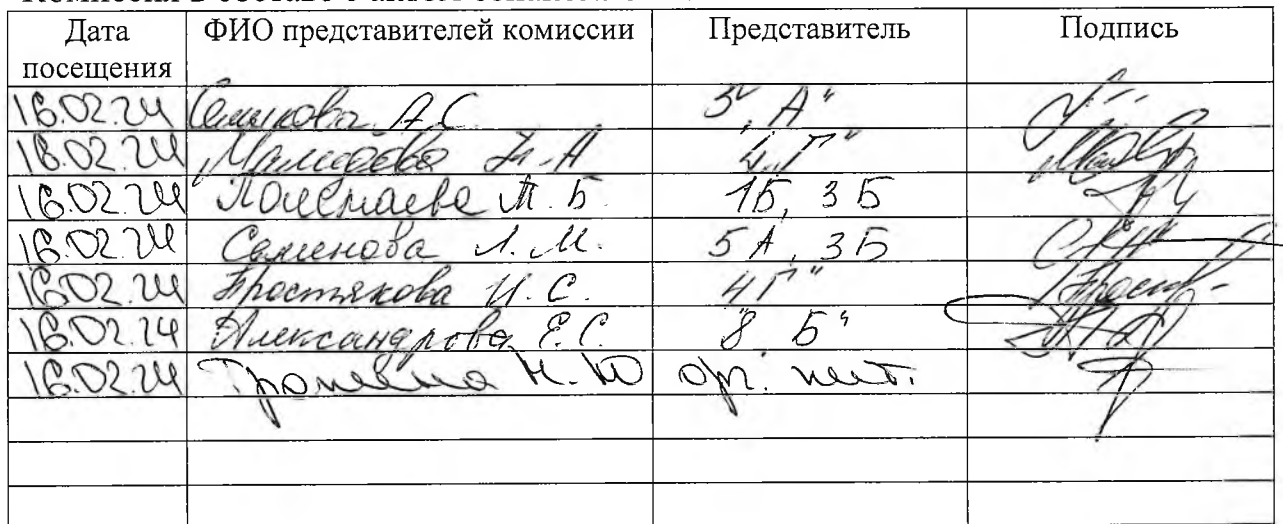 Дата посещения ФИО представителей комиссии Представитель Подпись
16.02.24 Семикова А.С. 3 "А"
16.02.24 Мамедова Н.А 4 "Г"
16.02.24 Т.Б. 1Б, 3Б
16.02.24 Семенова Л.М. 5А, 3Б
16.02.24 Простякова И.С. 4Г"
16.02.24 Александрова Е.С. 8 Б"
16.02.24 Н.Ю орг. пит.